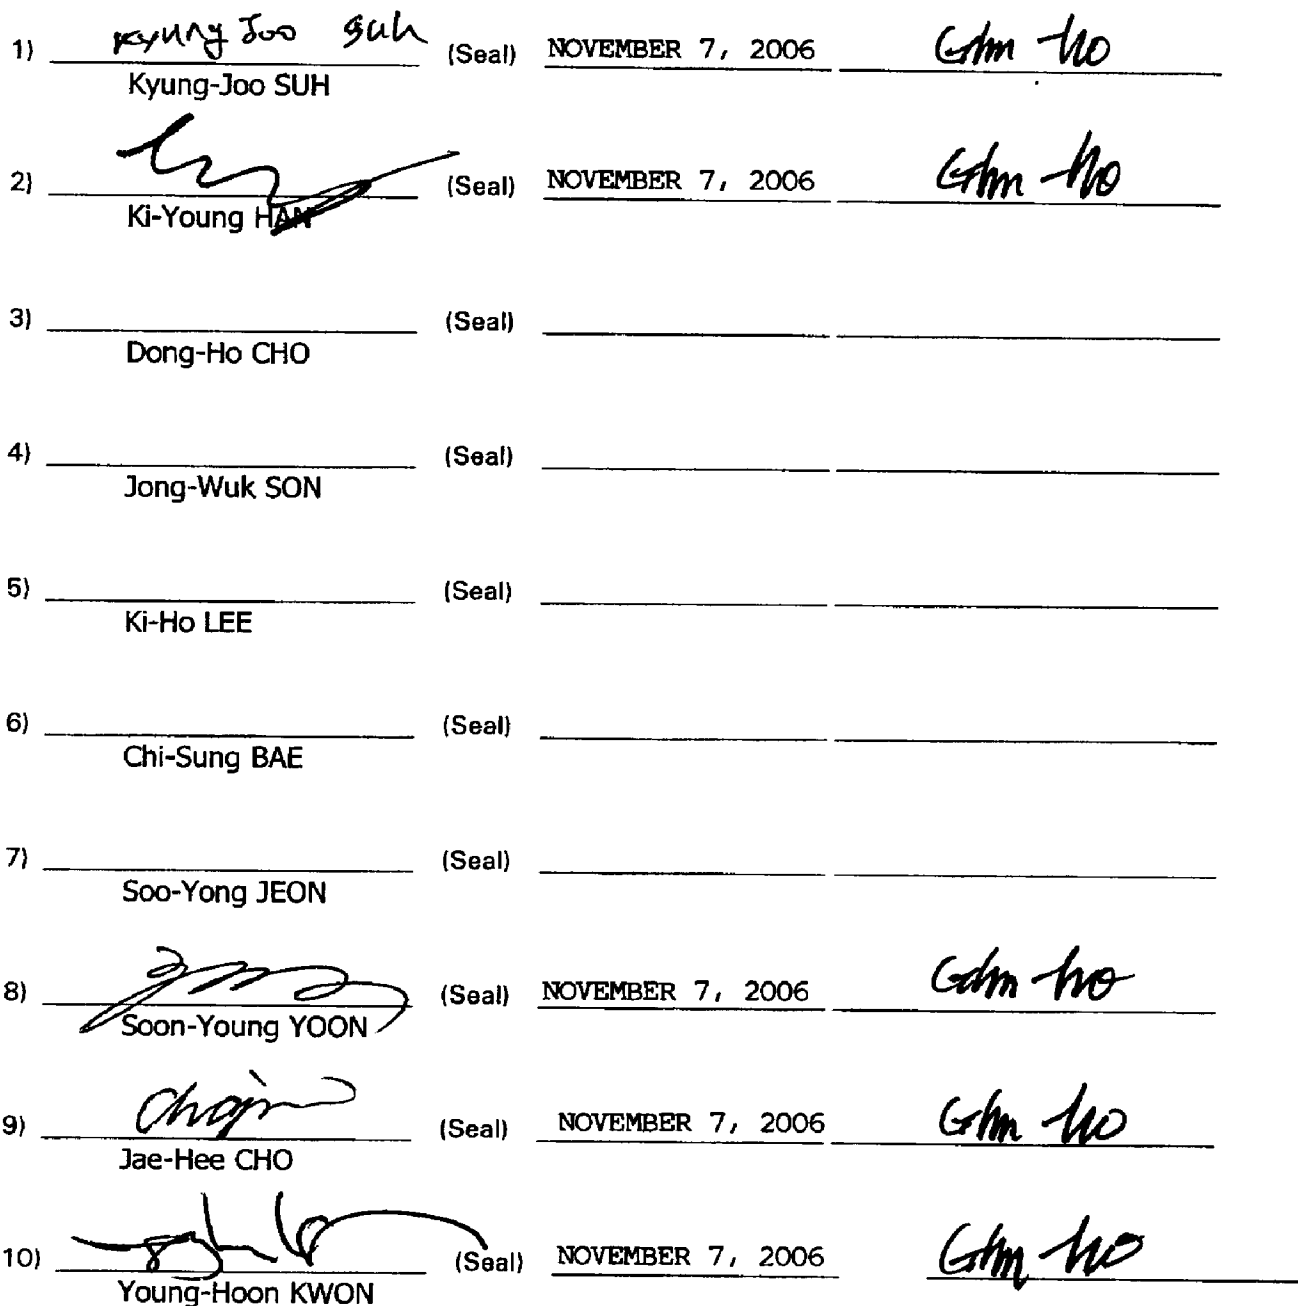 1) Kyung Joo Suh (Seal) NOVEMBER 7, 2006
Kyung-Joo SUH
2) (Seal) NOVEMBER 7, 2006
Ki-Young HAN
3) (Seal)
Dong-Ho CHO
4) (Seal)
Jong-Wuk SON
5) (Seal)
Ki-Ho LEE
6) (Seal)
Chi-Sung BAE
7) (Seal)
Soo-Yong JEON
8) (Seal) NOVEMBER 7, 2006
Soon-Young YOON
9) (Seal) NOVEMBER 7, 2006
Jae-Hee CHO
10) (Seal) NOVEMBER 7, 2006
Young-Hoon KWON